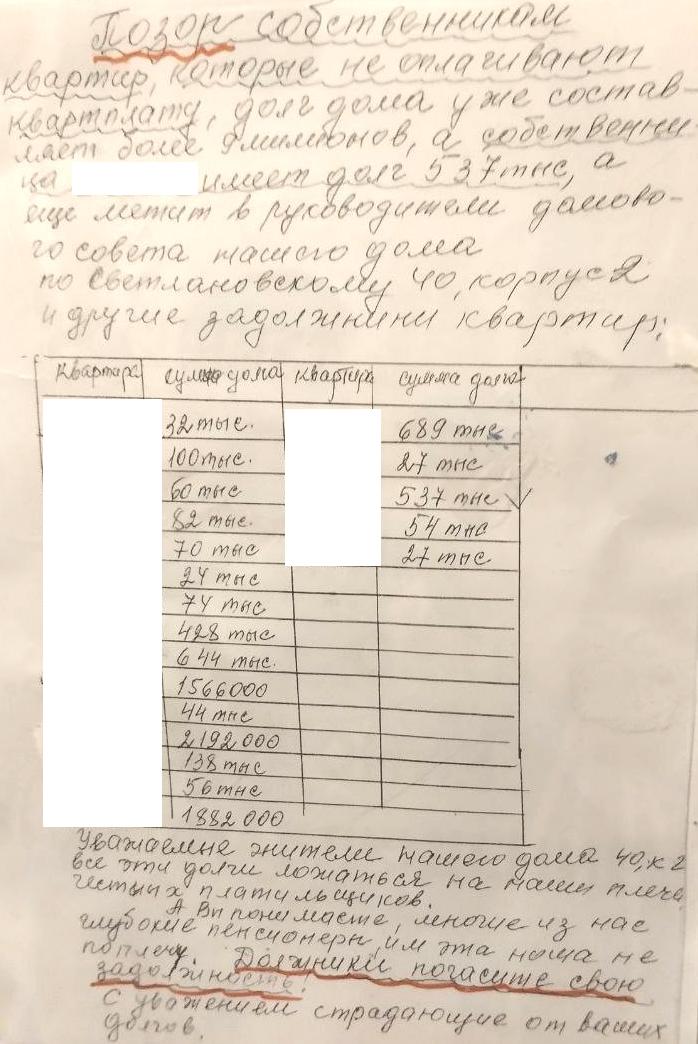 Позор собственникам
квартир, которые не оплачивают
квартплату, долг дома уже состав-
ляет более 9 миллионов, а собственни-
ца имеет долг 537 тыс, а
еще метит в руководители домово-
го совета нашего дома
по Светлановскому 40, корпус 2
и другие задолжники квартир:
квартира сумма дома квартира сумма долга
32 тыс. 689 тыс
100 тыс. 27 тыс
60 тыс 537 тыс
82 тыс. 54 тыс
70 тыс 27 тыс
24 тыс
74 тыс
428 тыс
644 тыс.
1566000
44 тыс
2192000
138 тыс
56 тыс
1882000
Уважаемые жители нашего дома 40, к 2
все эти долги ложаться на наши плечи,
честных плательщиков.
А Вы понимаете, многие из нас
глубокие пенсионеры, им эта ноша не
по плечу. Должники погасите свою
задолжность!
С уважением страдающие от ваших
долгов.